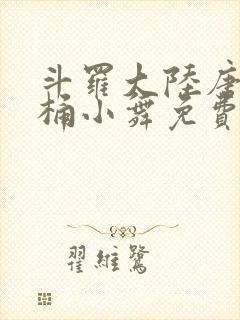 斗羅大陸唐
桶小舞免費
翟維鷺